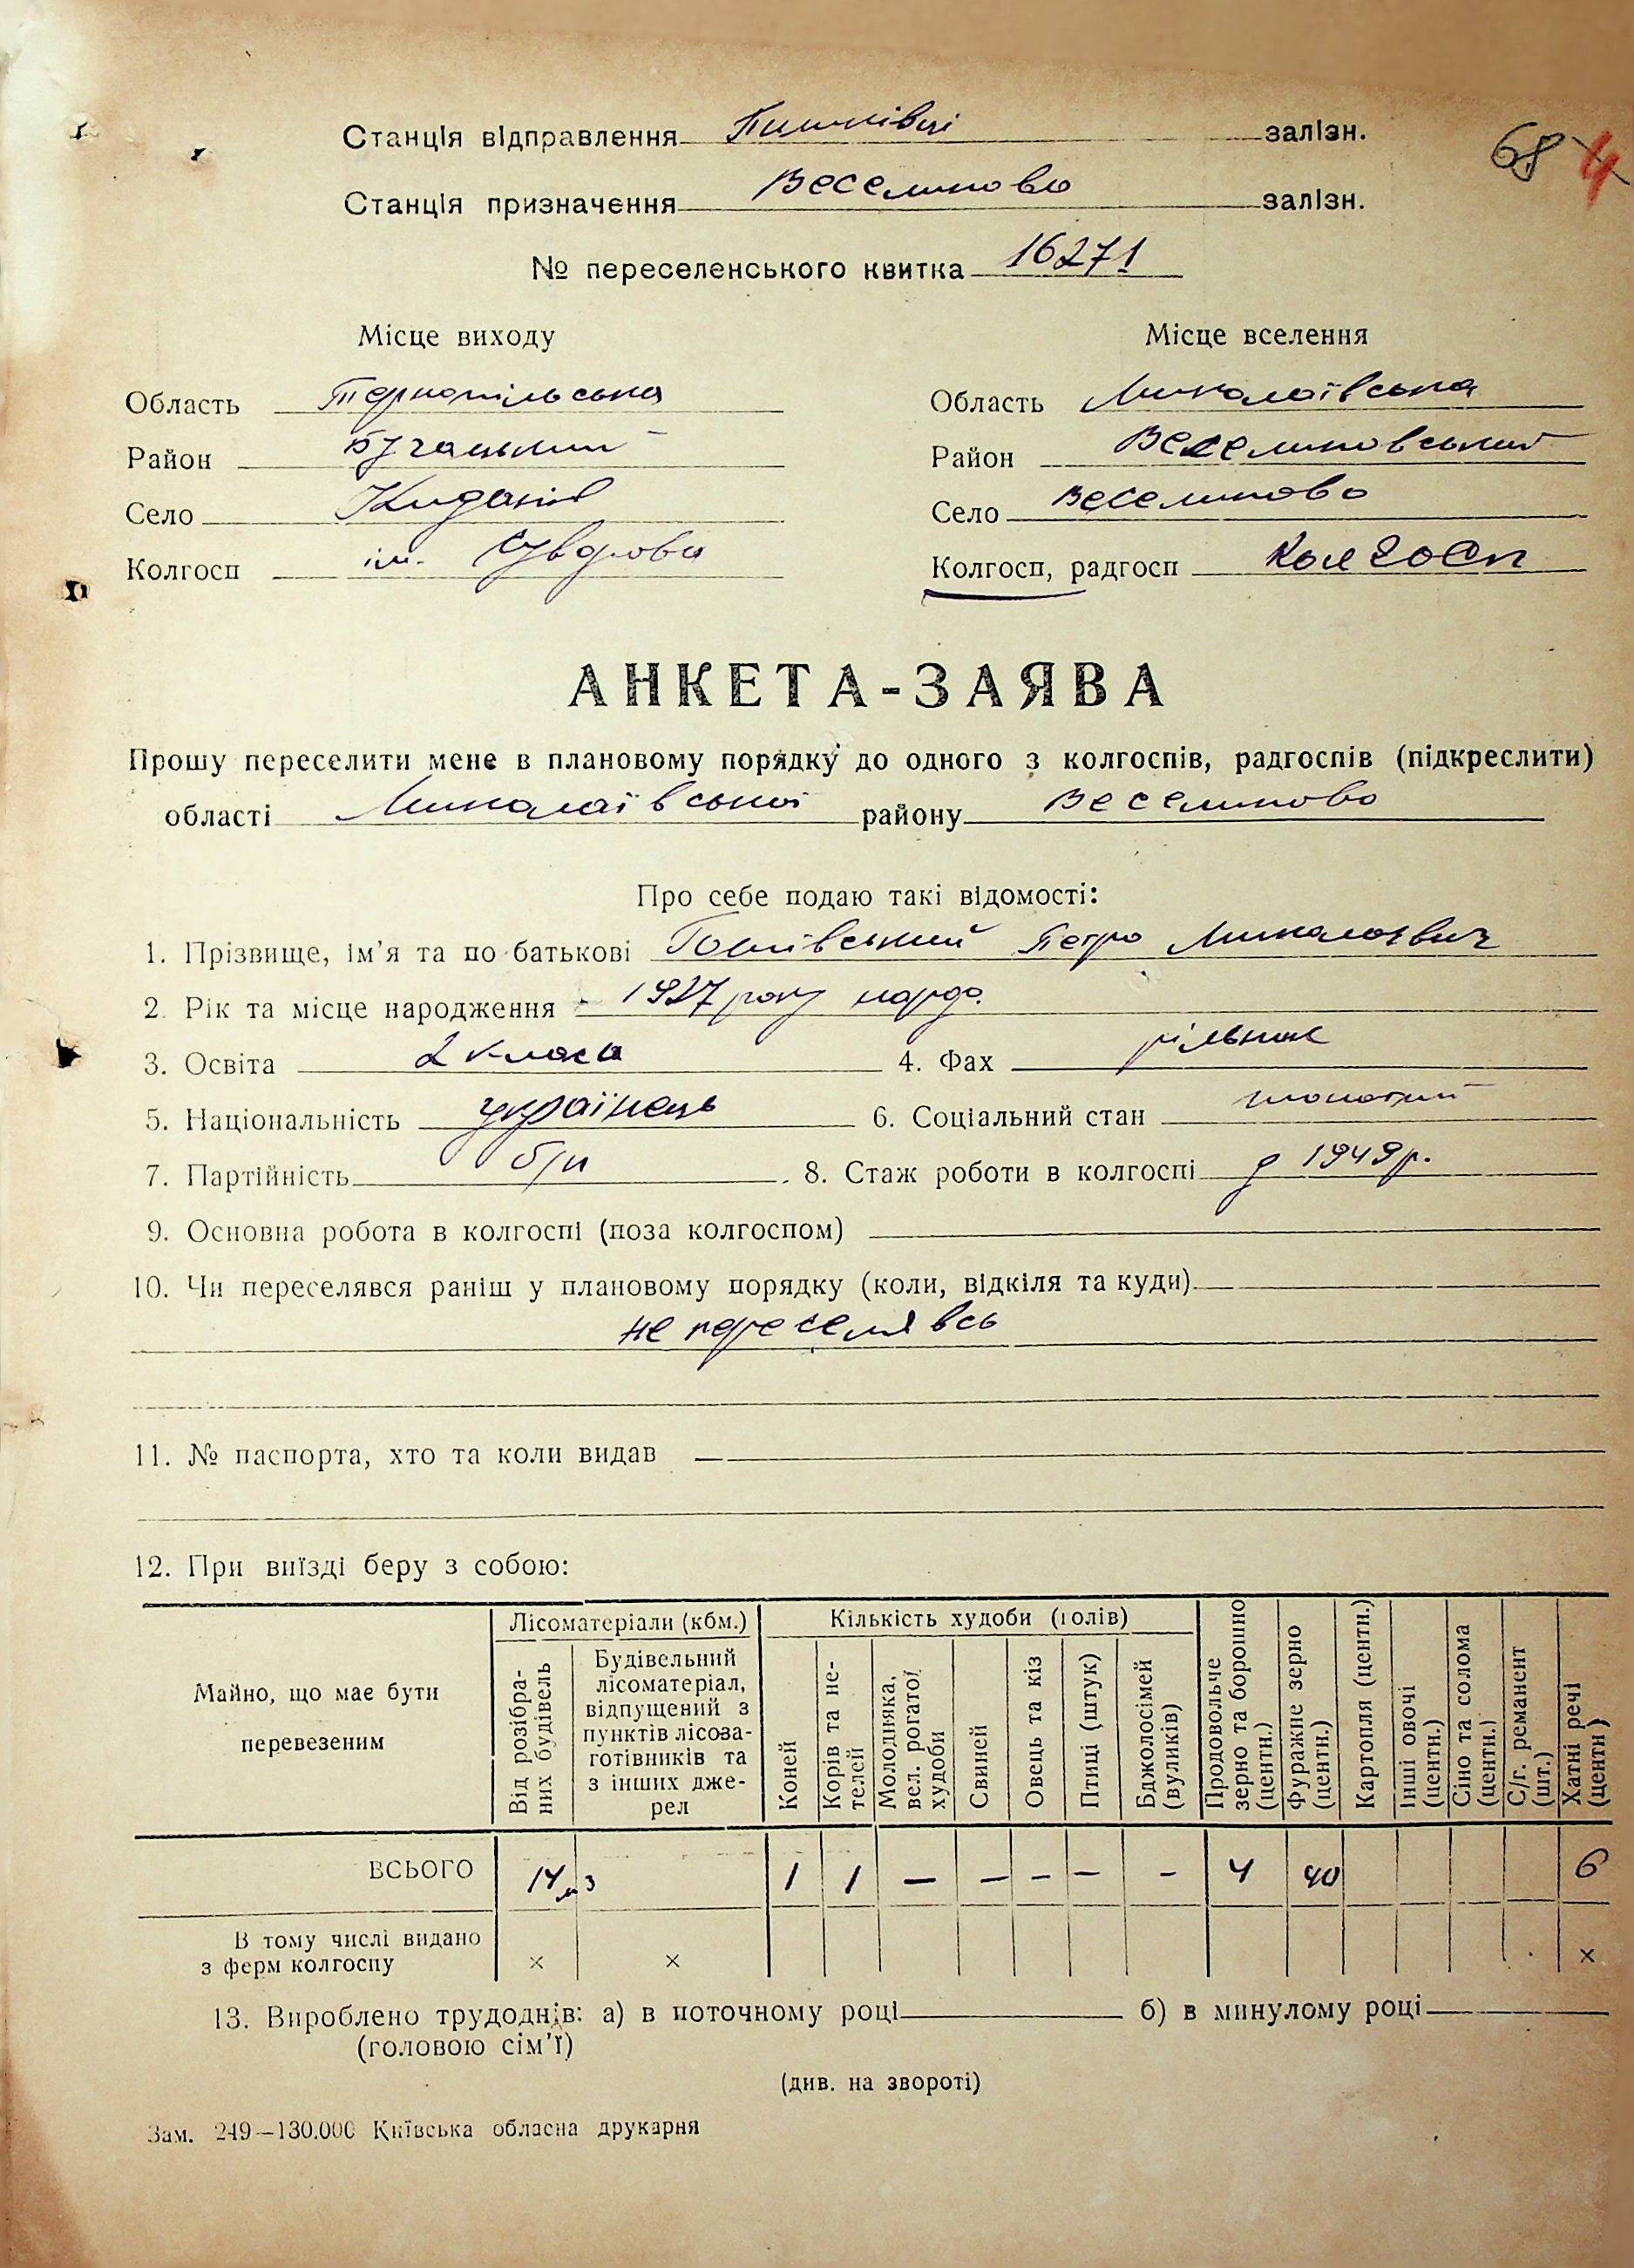 68 4
Станція відправлення Пишківці залізн.
Станція призначення Веселиново залізн.
№ переселенського квитка 16271
Місце виходу Місце вселення
Область Тернопільська Область Миколаївська
Район Бучацький Район Веселиновський
Село Киданів Село Веселиново
Колгосп ім. Суворова Колгосп, радгосп Колгосп
АНКЕТА-ЗАЯВА
Прошу переселити мене в плановому порядку до одного з колгоспів, радгоспів (підкреслити)
області Миколаївської району Веселиново
Про себе подаю такі відомості:
1. Прізвище, ім'я та по батькові Петро Миколаєвич
2. Рік та місце народження 1927 року народ.
3. Освіта 2 класа 4. Фах рільник
5. Національність українець 6. Соціальний стан
7. Партійність б/п 8. Стаж роботи в колгоспі з 1949 р.
9. Основна робота в колгоспі (поза колгоспом)
10. Чи переселявся раніш у плановому порядку (коли, відкіля та куди)
не переселявсь
11. № паспорта, хто та коли видав
12. При виїзді беру з собою:
Майно, що має бути перевезеним
Лісоматеріали (кбм.)
Від розібраних будівель
Будівельний лісоматеріал, відпущений з пунктів лісозаготівників та з інших джерел
Кількість худоби (голів)
Коней
Корів та нетелей
Молодняка, вел. рогатої худоби
Свиней
Овець та кіз
Птиці (штук)
Бджолосімей (вуликів)
Продовольче зерно та борошно (центн.)
Фуражне зерно (центн.)
Картопля (центн.)
Інші овочі (центн.)
Сіно та солома (центн.)
С/г. реманент (шт.)
Хатні речі (центн)
ВСЬОГО 14 м3 1 1 — — — — — 4 40 6
В тому числі видано
з ферм колгоспу × × ×
13. Вироблено трудоднів: а) в поточному році б) в минулому році
(головою сім'ї)
(див. на звороті)
Зам. 249—130.000 Київська обласна друкарня